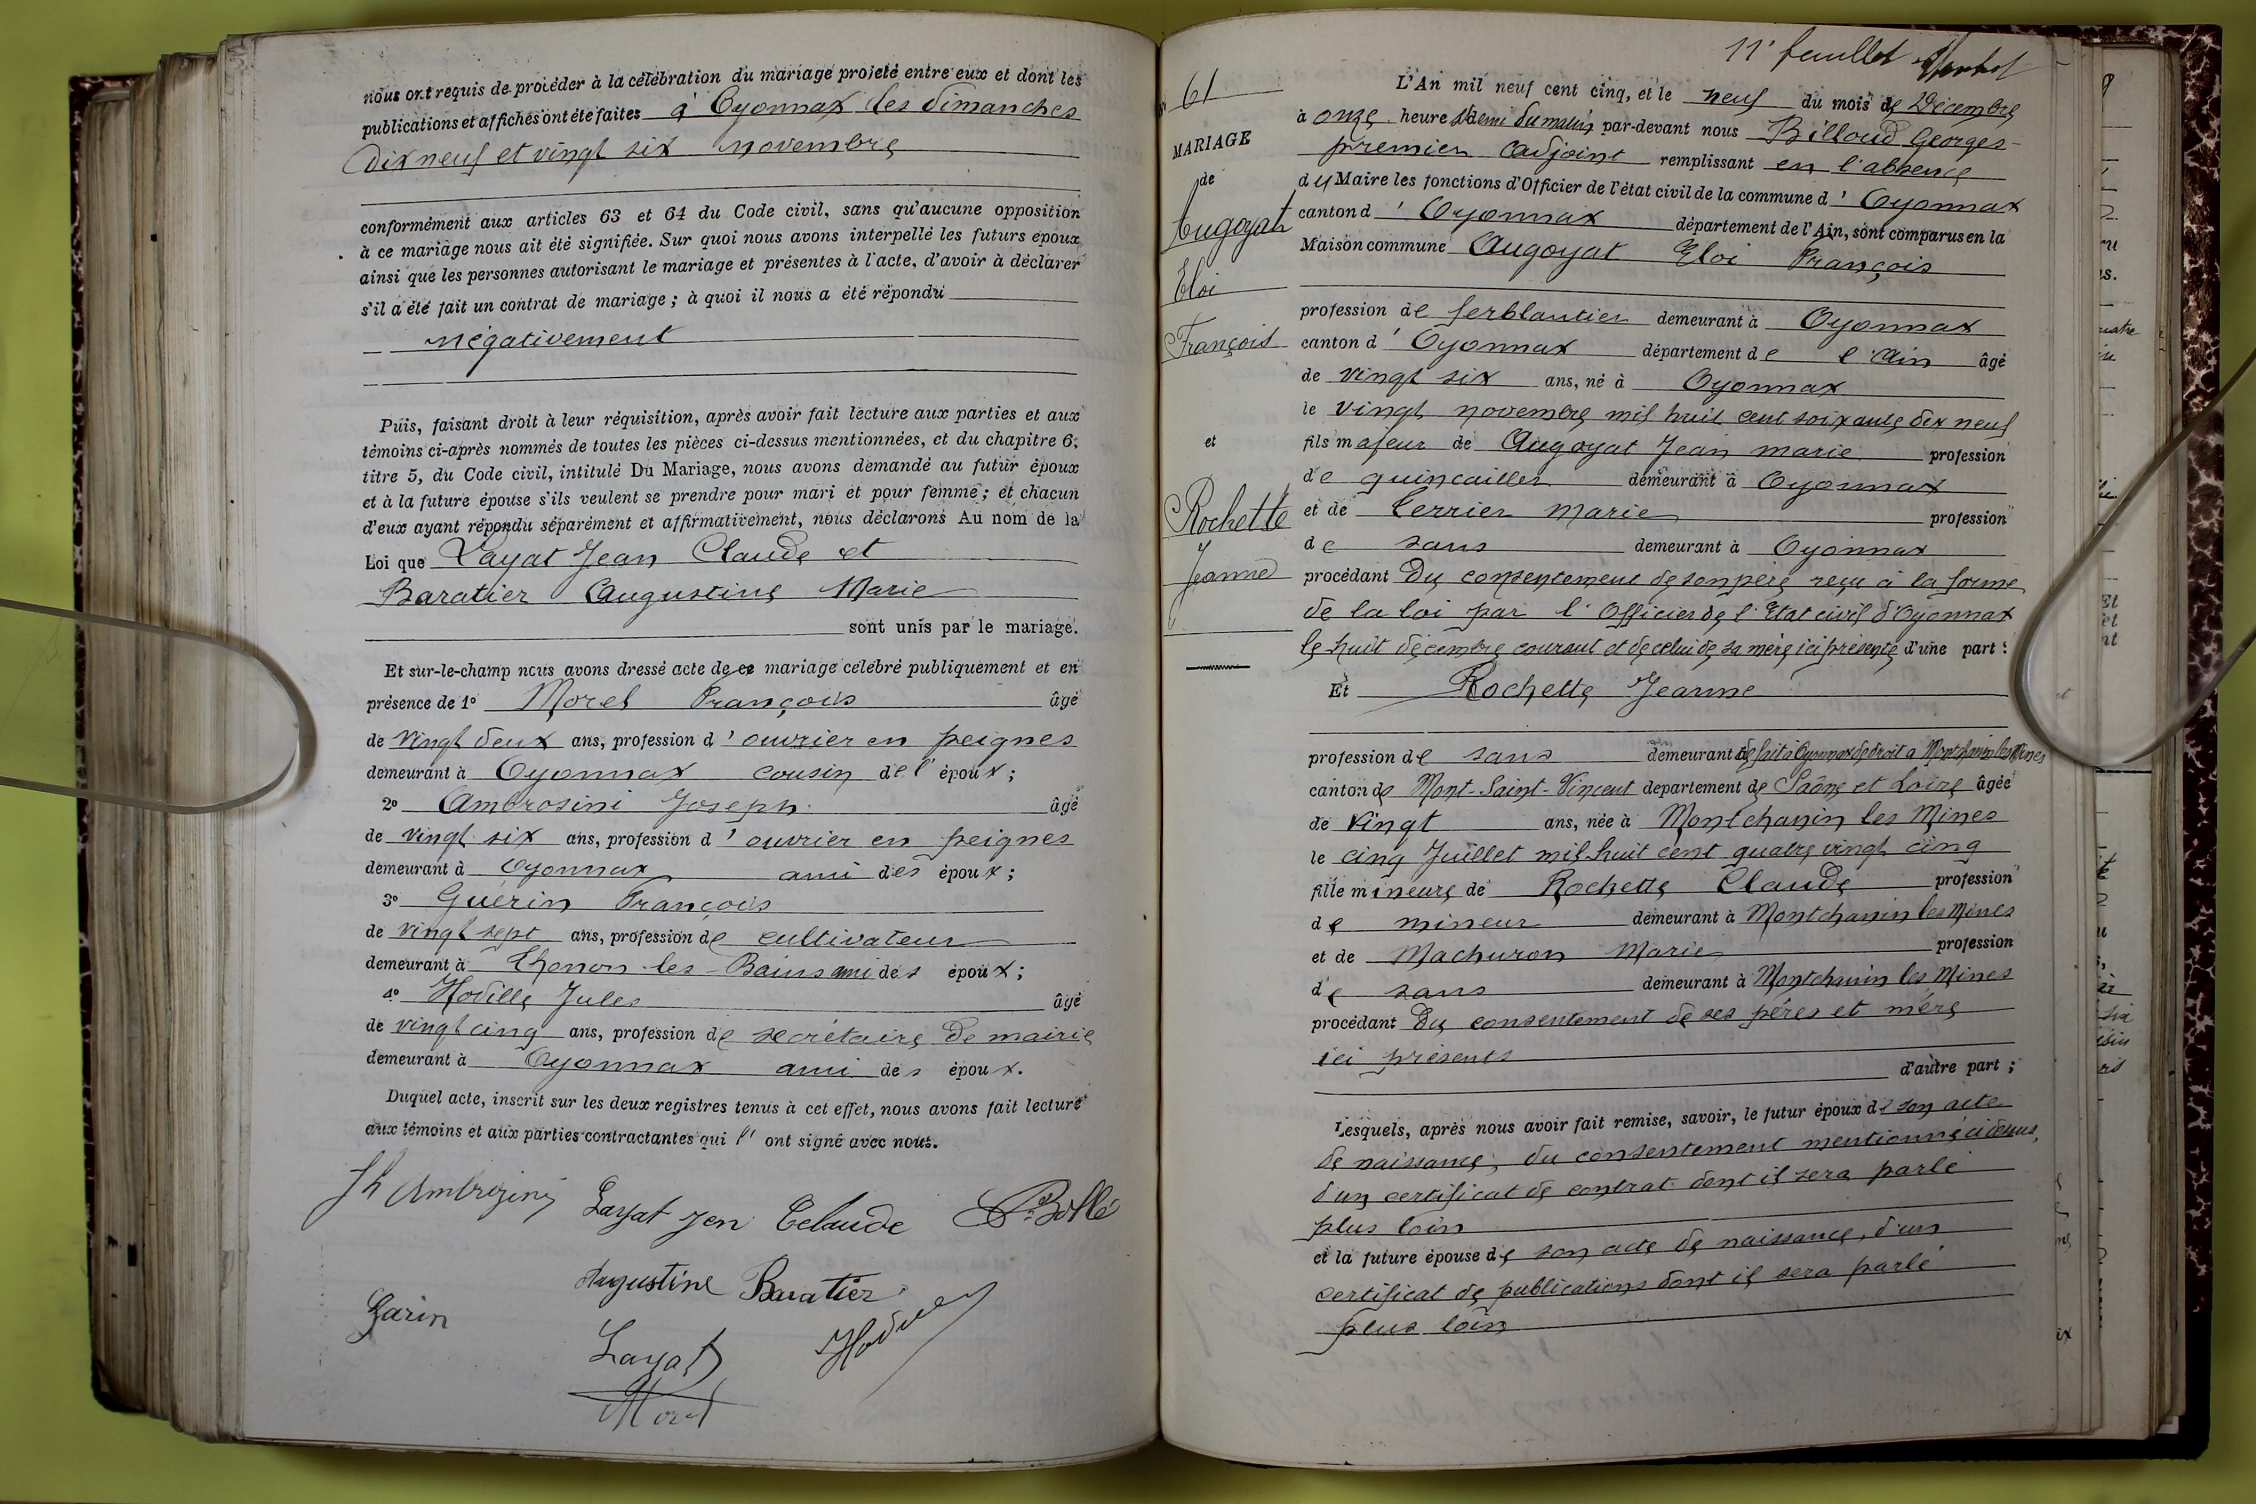 nous ont requis de procéder à la célébration du mariage projeté entre eux et dont les
publications et affiches ont été faites à Oyonnax les dimanches
dix neuf et vingt six novembre
conformément aux articles 63 et 64 du Code civil, sans qu'aucune opposition
à ce mariage nous ait été signifiée. Sur quoi nous avons interpellé les futurs époux
ainsi que les personnes autorisant le mariage et présentes à l'acte, d'avoir à déclarer
s'il a été fait un contrat de mariage ; à quoi il nous a été répondu
négativement
Puis, faisant droit à leur réquisition, après avoir fait lecture aux parties et aux
témoins ci-après nommés de toutes les pièces ci-dessus mentionnées, et du chapitre 6,
titre 5, du Code civil, intitulé Du Mariage, nous avons demandé au futur époux
et à la future épouse s'ils veulent se prendre pour mari et pour femme ; et chacun
d'eux ayant répondu séparément et affirmativement, nous déclarons Au nom de la
Loi que Layat Jean Claude et
Baratier Augustine Marie
sont unis par le mariage.
Et sur-le-champ nous avons dressé acte de ce mariage célébré publiquement et en
présence de 1° Morel François âgé
de vingt deux ans, profession d'ouvrier en peignes
demeurant à Oyonnax cousin de l'époux ;
2° Ambrosini Joseph âgé
de vingt six ans, profession d'ouvrier en peignes
demeurant à Oyonnax ami des époux ;
3° Guérin François
de vingt sept ans, profession de cultivateur
demeurant à Thonon-les-Bains ami des époux ;
4° Hodille Jules âgé
de vingt cinq ans, profession de secrétaire de mairie
demeurant à Oyonnax ami des époux.
Duquel acte, inscrit sur les deux registres tenus à cet effet, nous avons fait lecture
aux témoins et aux parties contractantes qui l'ont signé avec nous.
Layat Jen Celaude
Augustine Baratier
Layat
Morel
11e feuillet
61
MARIAGE
de
Augoyat
Eloi
François
et
Rochette
Jeanne
L'An mil neuf cent cinq, et le neuf du mois de Décembre
à onze heure et demi du matin par-devant nous Billoud Georges
premier adjoint remplissant en l'absence
du Maire les fonctions d'Officier de l'état civil de la commune d'Oyonnax
canton d'Oyonnax département de l'Ain, sont comparus en la
Maison commune Augoyat Eloi François
profession de ferblantier demeurant à Oyonnax
canton d'Oyonnax département de l'Ain âgé
de vingt six ans, né à Oyonnax
le vingt novembre mil huit cent soixante dix neuf
fils majeur de Augoyat Jean marie profession
de quincailler demeurant à Oyonnax
et de Cerrier Marie profession
de sans demeurant à Oyonnax
procédant du consentement de son père reçu à la forme
de la loi par l'Officier de l'Etat civil d'Oyonnax
le huit décembre courant et de celui de sa mère ici présente d'une part :
Et Rochette Jeanne
profession de sans demeurant de fait à Oyonnax de droit à Montchanin les Mines
canton de Mont-Saint-Vincent departement de Saône et Loire âgée
de vingt ans, née à Montchanin les Mines
le cinq Juillet mil huit cent quatre vingt cinq
fille mineure de Rochette Claude profession
de mineur demeurant à Montchanin les Mines
et de Machuron Marie profession
de sans demeurant à Montchanin les Mines
procédant du consentement de ses pères et mère
ici présents
d'autre part ;
Lesquels, après nous avoir fait remise, savoir, le futur époux de son acte
de naissance, du consentement mentionné ci dessus,
d'un certificat de contrat dont il sera parlé
plus loin
et la future épouse de son acte de naissance, d'un
certificat de publications dont il sera parlé
plus loin